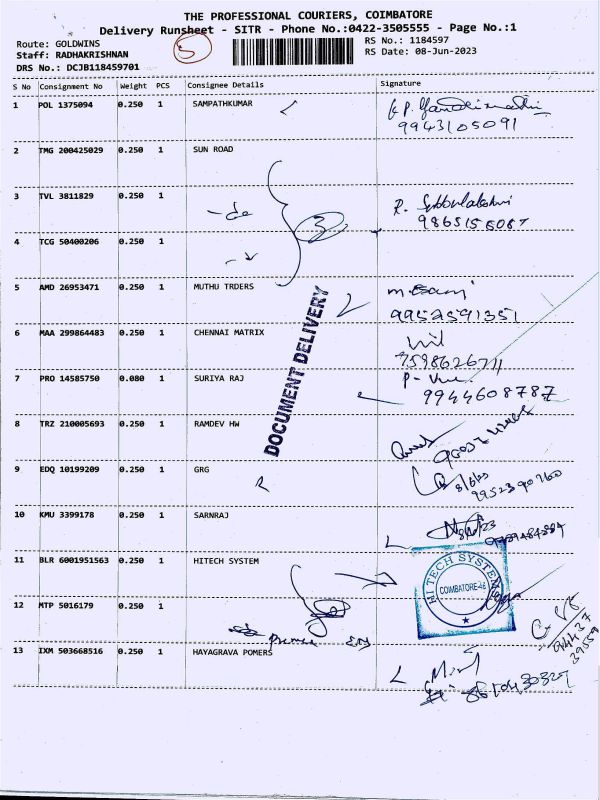 THE PROFESSIONAL COURIERS, COIMBATORE
Delivery Runsheet - SITR - Phone No.:0422-3505555 - Page No.:1
Route: GOLDWINS
Staff: RADHAKRISHNAN
DRS No.: DCJB118459701
5
RS No.: 1184597
RS Date: 08-Jun-2023
S No Consignment No Weight PCS Consignee Details Signature
1 POL 1375094 0.250 1 SAMPATHKUMAR
9943105091
2 TMG 200425029 0.250 1 SUN ROAD
3 TVL 3811829 0.250 1
R. Subbulakshmi
9865156087
3
4 TCG 50400206 0.250 1
5 AMD 26953471 0.250 1 MUTHU TRDERS
9952591351
DOCUMENT DELIVERY
6 MAA 299864483 0.250 1 CHENNAI MATRIX
7598626711
7 PRO 14585750 0.080 1 SURIYA RAJ
9944608787
8 TRZ 210005693 0.250 1 RAMDEV HW
9 EDQ 10199209 0.250 1 GRG
9952390760
10 KMU 3399178 0.250 1 SARNRAJ
11 BLR 6001951563 0.250 1 HITECH SYSTEM
HI TECH SYSTEM
COIMBATORE-48
12 MTP 5016179 0.250 1
13 IXM 503668516 0.250 1 HAYAGRAVA POMERS